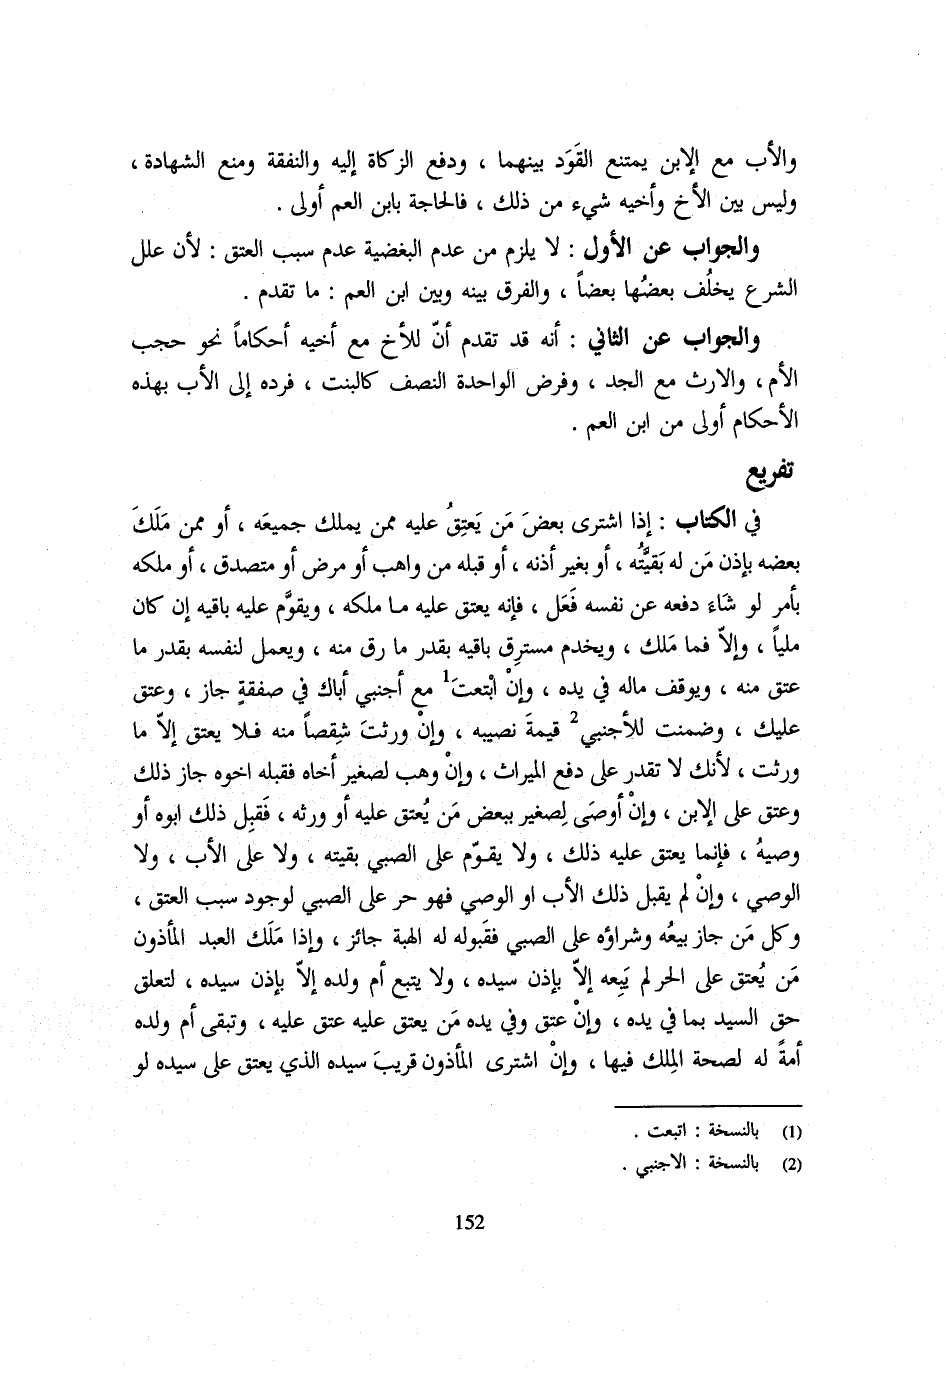 والأب مع الإبن يمتنع القَوَد بينهما ، ودفع الزكاة إليه والنفقة ومنع الشهادة ،
وليس بين الأخ وأخيه شيء من ذلك ، فالحاجة بابن العم أولى .
والجواب عن الأول : لا يلزم من عدم البغضية عدم سبب العتق : لأن علل
الشرع يخلُف بعضُها بعضاً ، والفرق بينه وبين ابن العم : ما تقدم .
والجواب عن الثاني : أنه قد تقدم أنّ للأخ مع أخيه أحكاماً نحو حجب
الأم ، والارث مع الجد ، وفرض الواحدة النصف كالبنت ، فرده إلى الأب بهذه
الأحكام أولى من ابن العم .
تفريع
في الكتاب : إذا اشترى بعضَ مَن يَعتِقُ عليه ممن يملك جميعَه ، أو ممن مَلَكَ
بعضه بإذن مَن له بَقيَّتُه ، أو بغير أذنه ، أو قبله من واهب أو مرض أو متصدق ، أو ملكه
بأمر لو شَاءَ دفعه عن نفسه فَعَل ، فإنه يعتق عليه ما ملكه ، ويقوَّم عليه باقيه إن كان
ملياً ، وإلاّ فما مَلك ، ويخدم مسترِق باقيه بقدر ما رق منه ، ويعمل لنفسه بقدر ما
عتق منه ، ويوقف ماله في يده ، وإنْ ابْتعتَ1 مع أجنبي أباك في صفقةٍ جاز ، وعتق
عليك ، وضمنت للأجنبي2 قيمةَ نصيبه ، وإنْ ورثتَ شِقصاً منه فلا يعتق إلاّ ما
ورثت ، لأنك لا تقدر على دفع الميراث ، وإنْ وهب لصغير أخاه فقبله اخوه جاز ذلك
وعتق على الإبن ، وإنْ أوصَى لِصغير ببعض مَن يُعتق عليه أو ورثه ، فَقبِل ذلك ابوه أو
وصيهُ ، فإنما يعتق عليه ذلك ، ولا يقوّم على الصبي بقيته ، ولا على الأب ، ولا
الوصي ، وإنْ لم يقبل ذلك الأب او الوصي فهو حر على الصبي لوجود سبب العتق ،
وكل مَن جاز بيعُه وشراؤه على الصبي فقَبوله له الهبة جائز ، وإذا مَلَك العبد المأذون
مَن يُعتق على الحر لم يَبِعه إلاّ بإذن سيده ، ولا يتبع أم ولده إلاّ بإذن سيده ، لتعلق
حق السيد بما في يده ، وإنْ عتق وفي يده مَن يعتق عليه عتق عليه ، وتبقى أم ولده
أمةً له لصحة المِلك فيها ، وإنْ اشترى المأذون قريبَ سيده الذي يعتق على سيده لو
(1) بالنسخة : اتبعت .
(2) بالنسخة : الاجنبي .
152